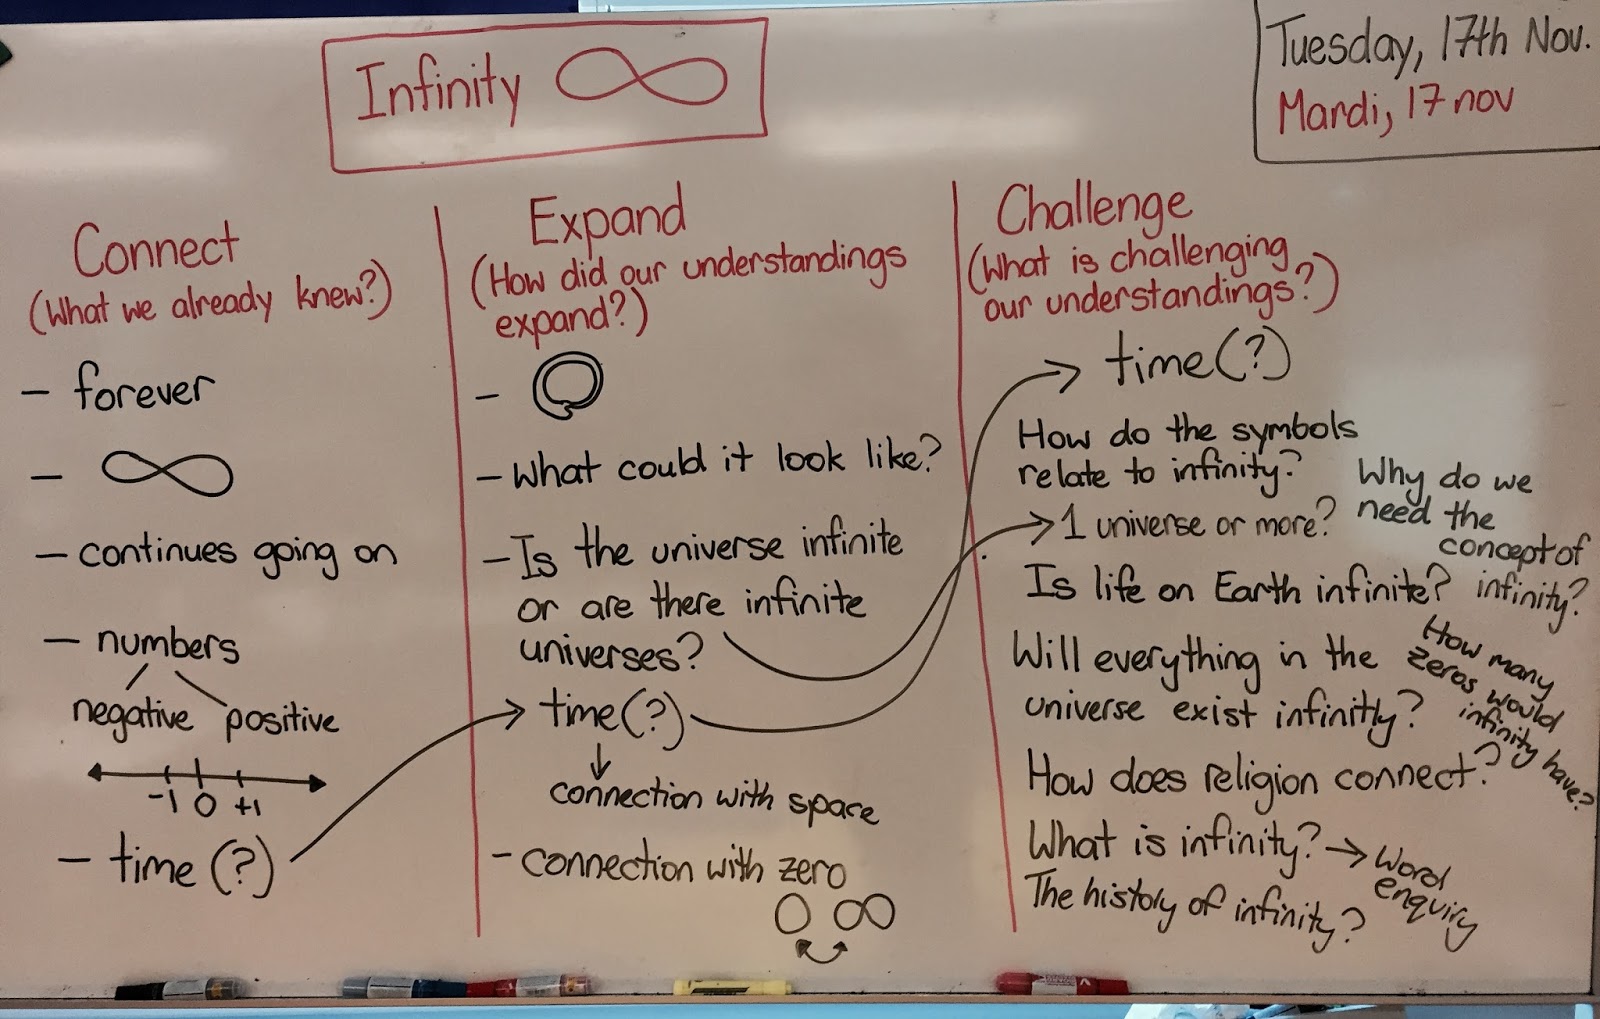 Infinity ∞
Tuesday, 17th Nov.
Mardi, 17 nov
Connect
(What we already knew?)
- forever
- ∞
- continues going on
- numbers
negative positive
-1 0 +1
- time (?)
Expand
(How did our understandings
expand?)
-
- What could it look like?
- Is the universe infinite
or are there infinite
universes?
time(?)
connection with space
- connection with zero
0 ∞
Challenge
(What is challenging
our understandings?)
time(?)
How do the symbols
relate to infinity?
1 universe or more?
Is life on Earth infinite?
Will everything in the
universe exist infinitly?
How does religion connect?
What is infinity? → Word
enquiry
The history of infinity?
Why do we
need the
concept of
infinity?
How many
zeros would
infinity have?